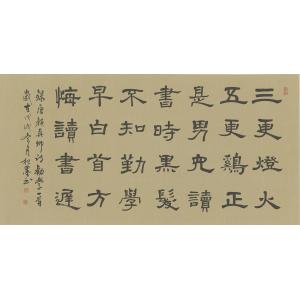 三更燈火
五更鷄正
是男兒讀
書時黑髮
不知勤學
早白首方
悔讀書遲
録唐顔真卿詩勸學一首